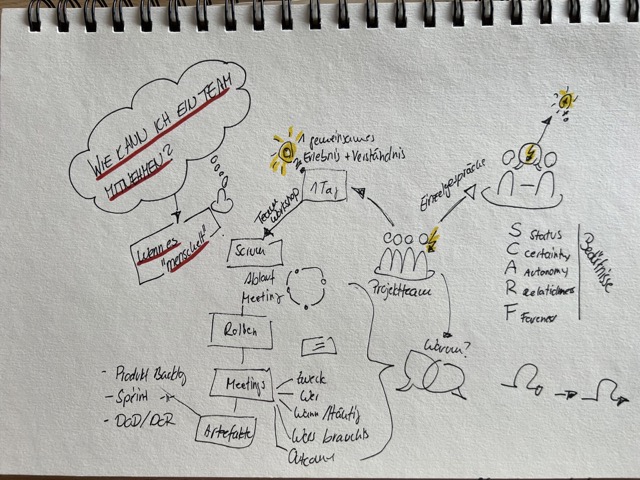 WIE KANN ICH EIN TEAM
MITNEHMEN?
Wenn es
"menschelt"
1 gemeinsames
Erlebnis + Verständnis
1 Tag
Team-
Workshop
Scrum
Ablauf
Meeting
Rollen
Meetings
Zweck
Wer
Wann / Häufig
Wers brauchts
Outcome
Artefakte
- Produkt Backlog
- Sprint
- DoD/DoR
Projektteam
Einzelgespräche
Warum?
S Status
C Certainty
A Autonomy
R
F
Bedürfnisse